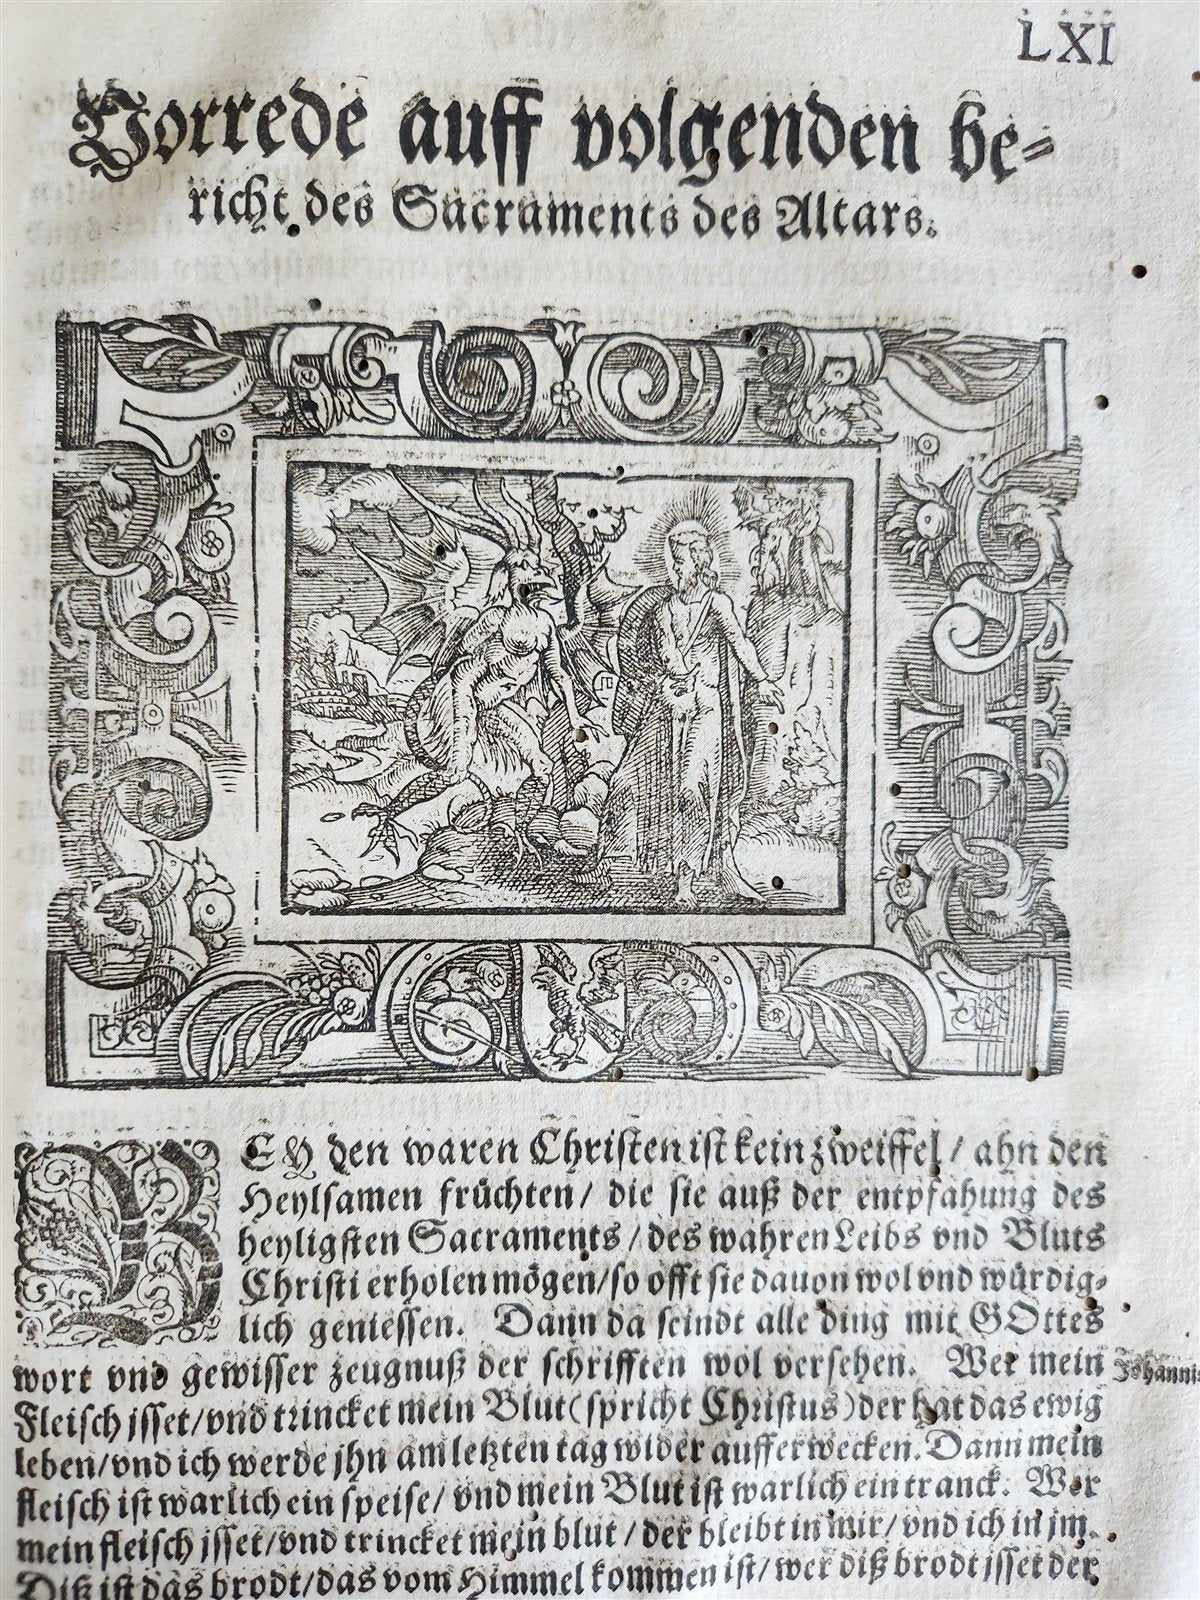 LXI
Vorrede auff volgenden be⸗
richt des Sacraments des Altars.
BEY den waren Christen ist kein zweiffel/ ahn den
Heylsamen früchten/ die sie auß der entpfahung des
heyligsten Sacraments/ des wahren Leibs vnd Bluts
Christi erholen mögen/ so offt sie dauon wol vnd würdig⸗
lich geniessen. Dann da seindt alle ding mit GOttes
wort vnd gewisser zeugnuß der schrifften wol versehen. Wer mein
Johannis
Fleisch isset/ vnd trincket mein Blut (spricht Christus) der hat das ewig
leben/ vnd ich werde jhn am letzten tag wider aufferwecken. Dann mein
fleisch ist warlich ein speise/ vnd mein Blut ist warlich ein tranck: Wer
mein fleisch isset/ vnd trincket mein blut/ der bleibt in mir/ vnd ich in jm.
Diß ist das brodt/ das vom Himmel kommen ist/ wer diß brodt isset der